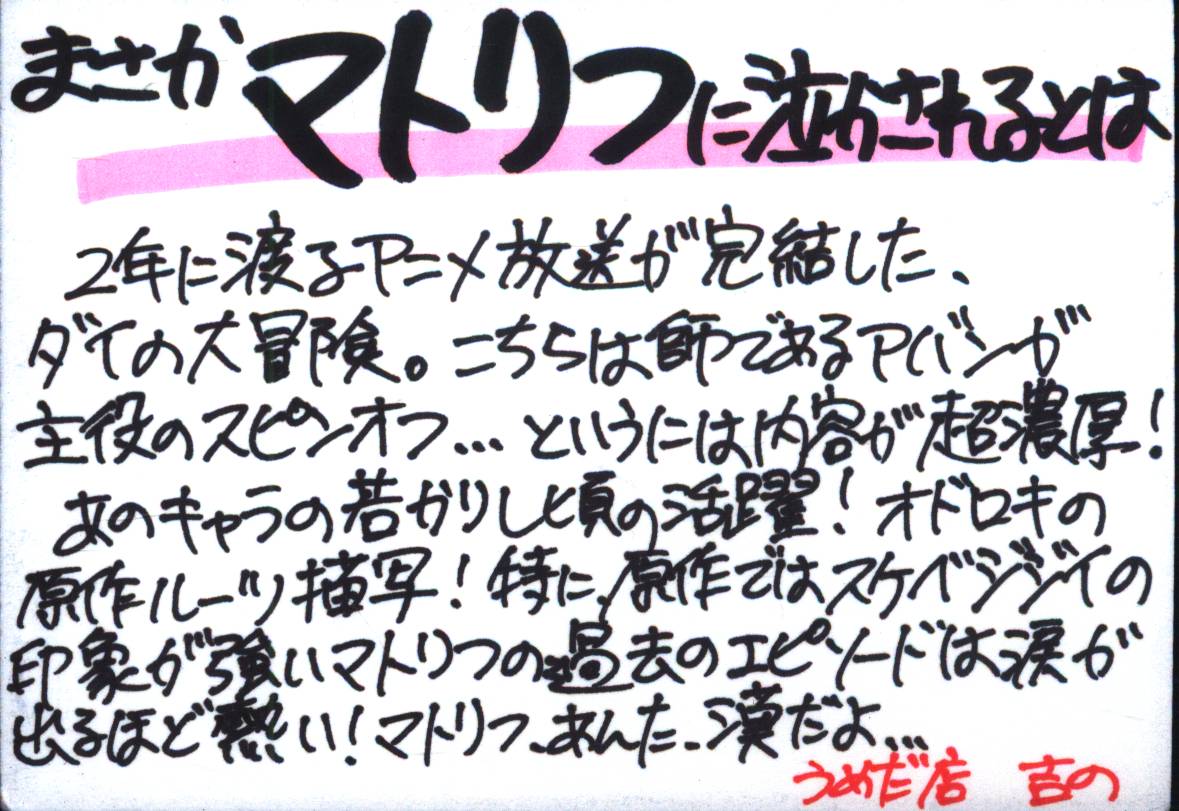 まさかマトリフに泣かされるとは
2年に渡るアニメ放送が完結した、
ダイの大冒険。こちらは師であるアバンが
主役のスピンオフ…というには内容が超濃厚!
あのキャラの若かりし頃の活躍!オドロキの
原作ルーツ描写!特に、原作ではスケベジジイの
印象が強いマトリフの過去のエピソードは涙が
出るほど熱い!マトリフ、あんた、漢だよ…
うめだ店 吉の